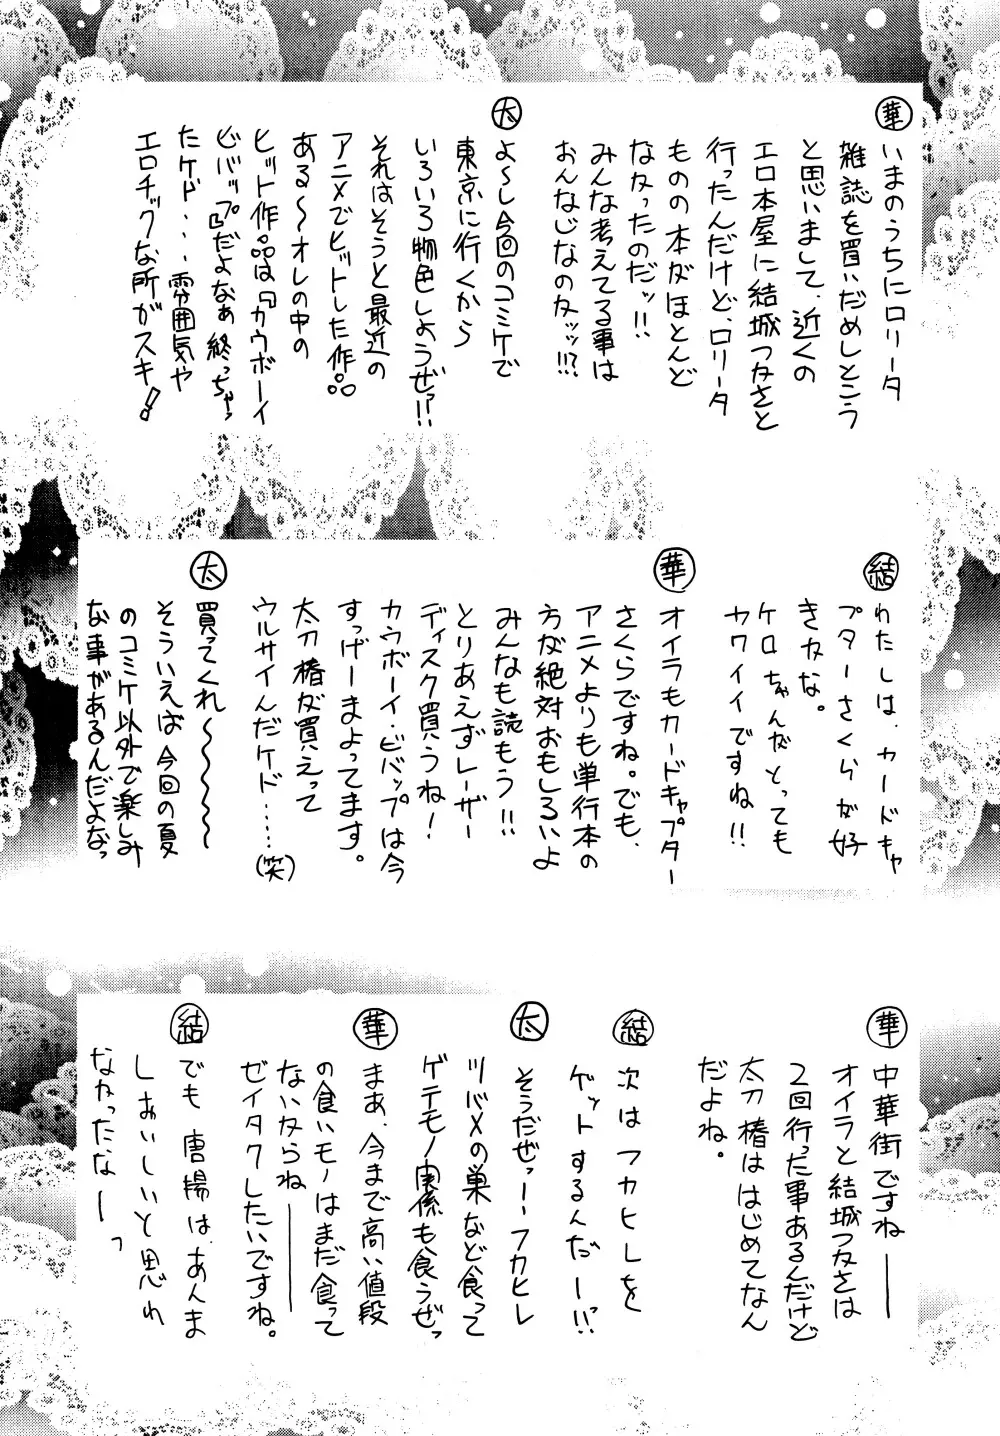 華
いまのうちにロリータ
雑誌を買いだめしとこう
と思いまして、近くの
エロ本屋に結城つかさと
行ったんだけど、ロリータ
ものの本がほとんど
なかったのだッ!!
みんな考えてる事は
おんなじなのかッッ!!?
太
よ〜し今回のコミケで
東京に行くから
いろいろ物色しようぜっ!?
それはそうと最近の
アニメでヒットした作品
ある〜オレの中の
ヒット作品は『カウボーイ
ビバップ』だよなぁ終っちゃっ
たケド・・・雰囲気や
エロチックな所がスキ!
結
わたしは、カードキャ
プターさくらが好
きかな。
ケロちゃんがとっても
カワイイですね!!
華
オイラもカードキャプター
さくらですね。でも、
アニメよりも単行本の
方が絶対おもしろいよ
みんなも読もう!!
とりあえずレーザー
ディスク買うね!
カウボーイ・ビバップは今
すっげーまよってます。
太刀椿が買えって
ウルサイんだケド……
(笑)
太
買ってくれ〜〜〜〜〜〜
そういえば今回の夏
のコミケ以外で楽しみ
な事があるんだよなっ
華
中華街ですね───
オイラと結城つかさは
2回行った事あるんだけど
太刀椿ははじめてなん
だよね。
結
次はフカヒレを
ゲットするんだーっ!!
太
そうだぜっーフカヒレ
ツバメの巣など食って
ゲテモノ関係も食うぜっ
華
まあ、今まで高い値段
の食いモノはまだ食って
ないからね───
ゼイタクしたいですね。
結
でも唐揚は、あんま
しおいしいと思わ
なかったなーっ